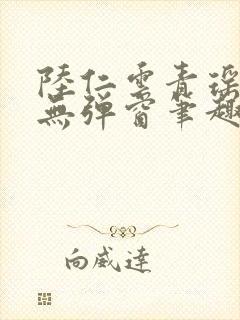 陸仁雲青瑤
無彈窗筆趣
向威達